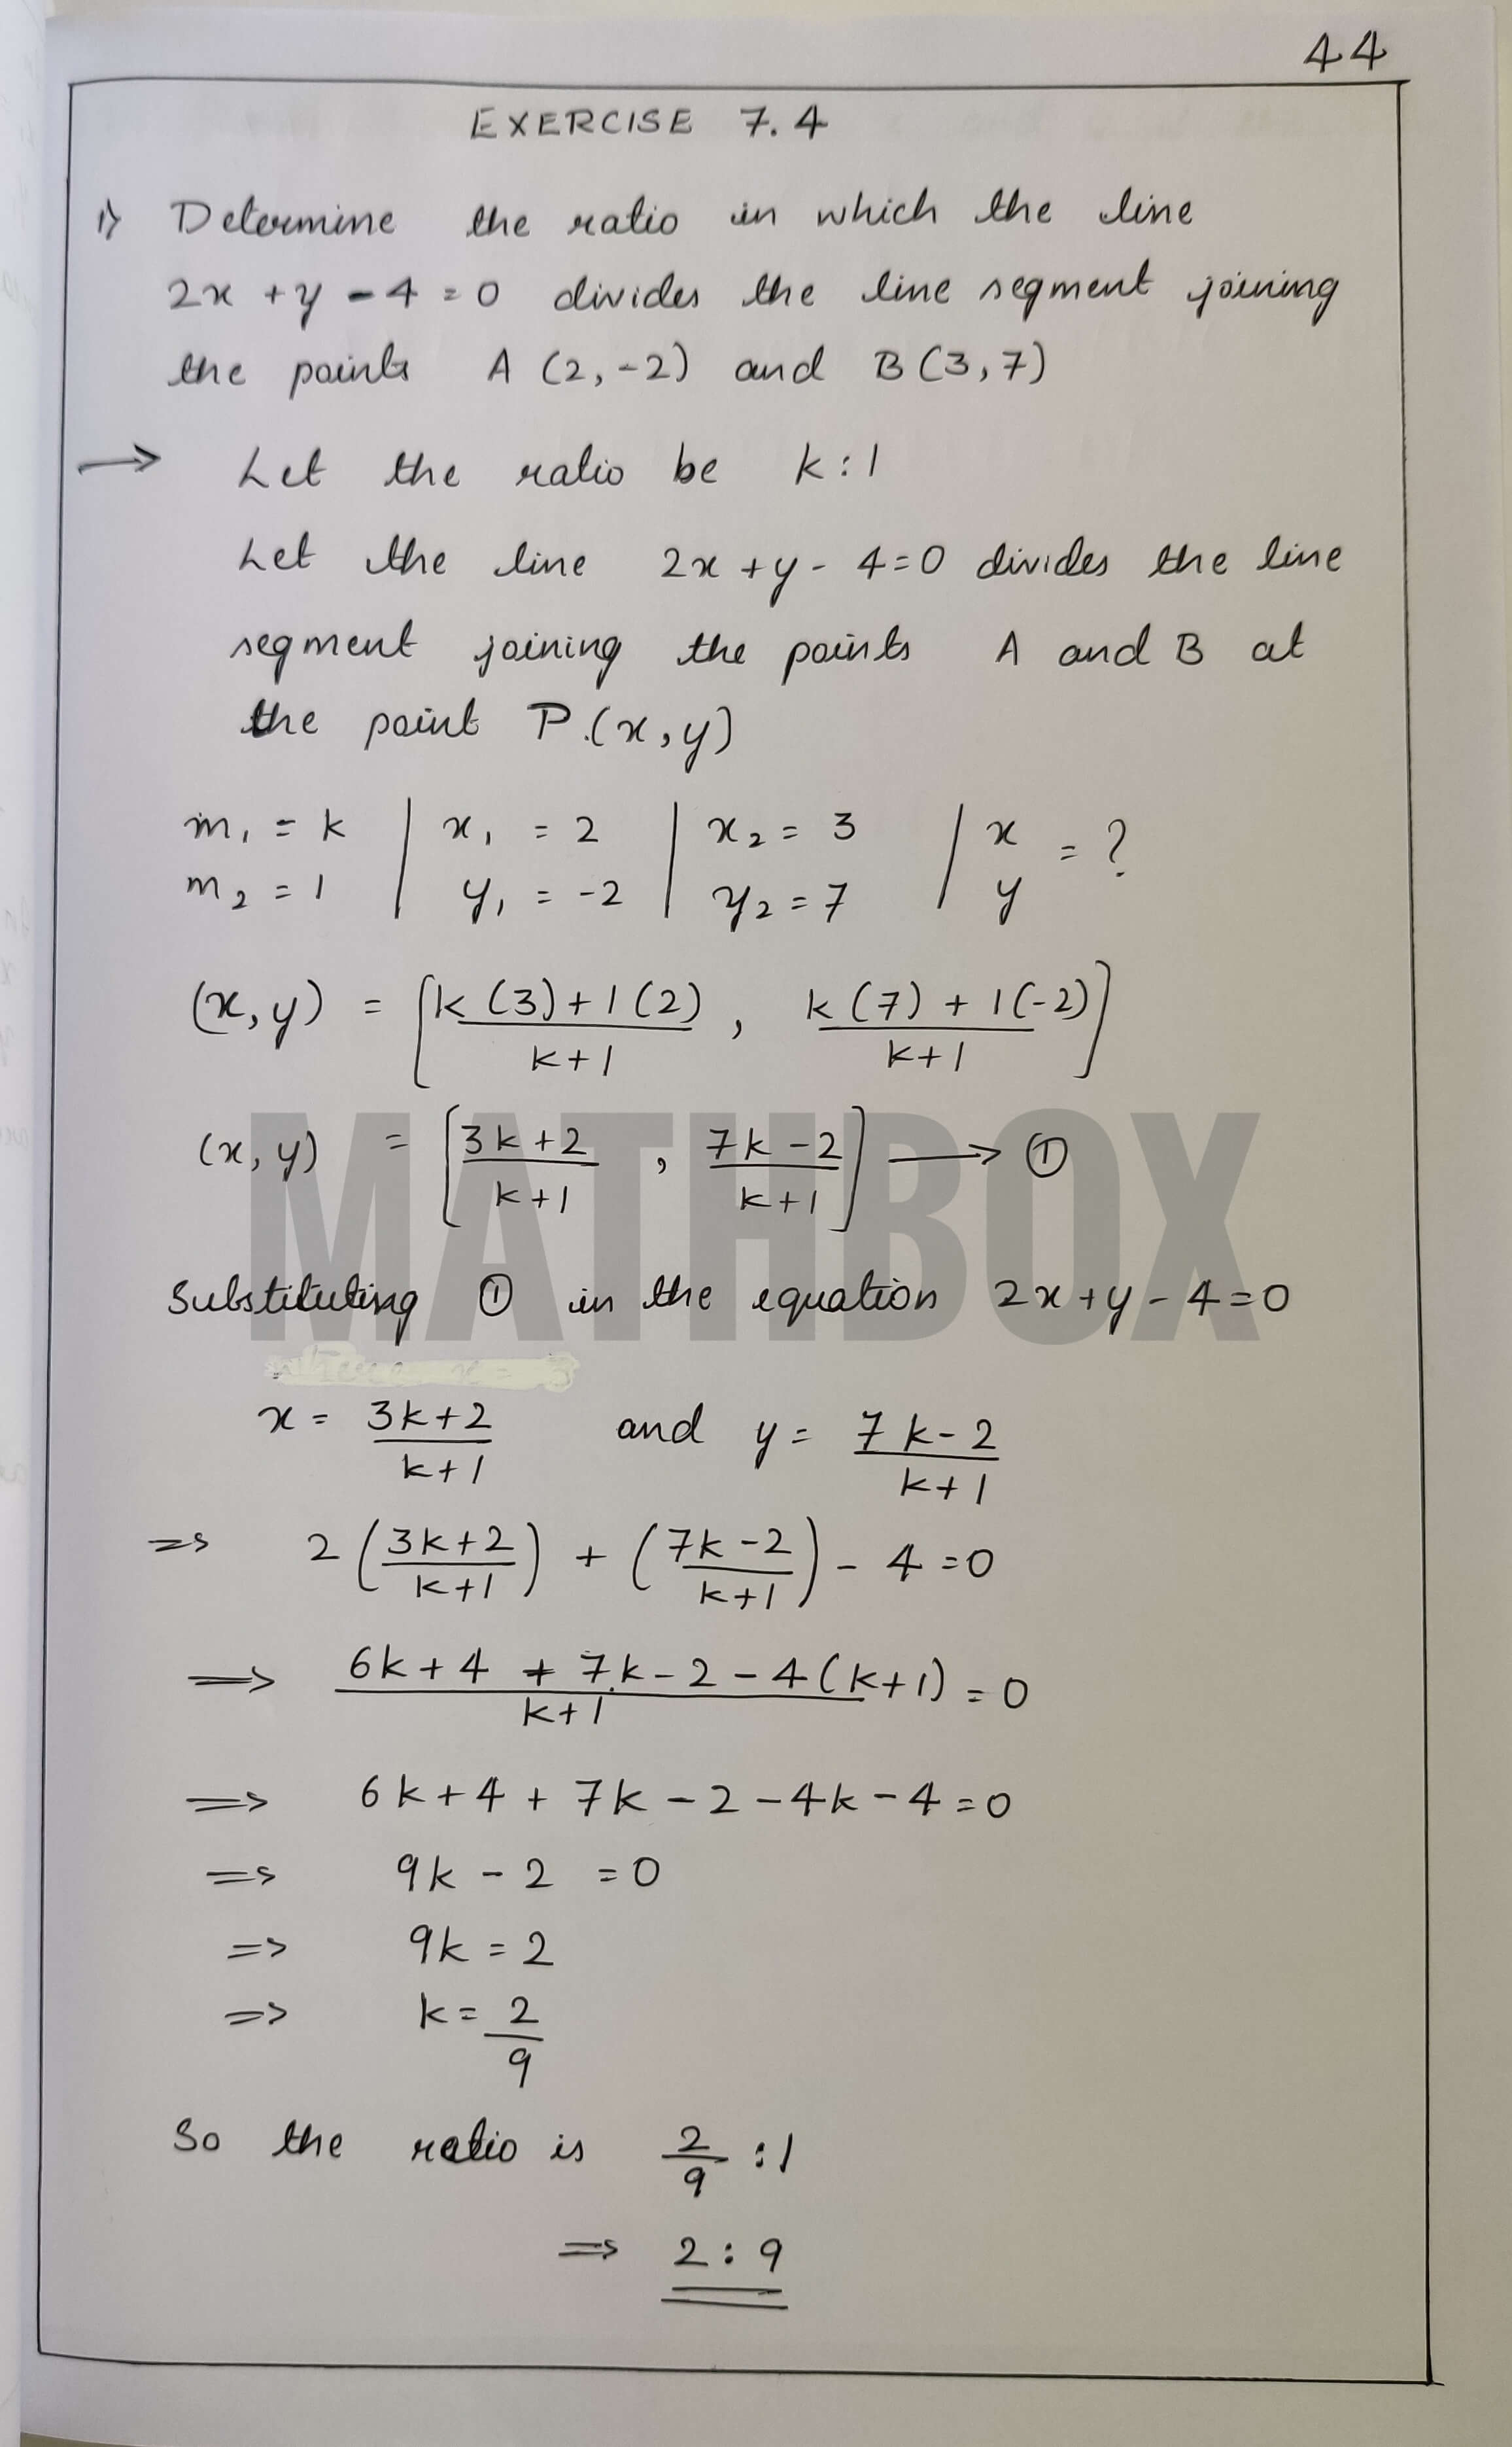 44
EXERCISE 7.4
1) Determine the ratio in which the line
2x + y - 4 = 0 divides the line segment joining
the points A (2, -2) and B (3, 7)
→ Let the ratio be k : 1
Let the line 2x + y - 4 = 0 divides the line
segment joining the points A and B at
the point P.(x, y)
m₁ = k | x₁ = 2 | x₂ = 3 | x = ?
m₂ = 1 | y₁ = -2 | y₂ = 7 | y
(x, y) = [k (3) + 1 (2) / k + 1 , k (7) + 1 (-2) / k + 1]
(x, y) = [3k + 2 / k + 1 , 7k - 2 / k + 1] → ①
MATHBOX
Substituting ① in the equation 2x + y - 4 = 0
x = 3k + 2 / k + 1 and y = 7k - 2 / k + 1
=> 2 (3k + 2 / k + 1) + (7k - 2 / k + 1) - 4 = 0
=> 6k + 4 + 7k - 2 - 4 (k + 1) / k + 1 = 0
=> 6k + 4 + 7k - 2 - 4k - 4 = 0
=> 9k - 2 = 0
=> 9k = 2
=> k = 2 / 9
So the ratio is 2 / 9 : 1
=> 2 : 9